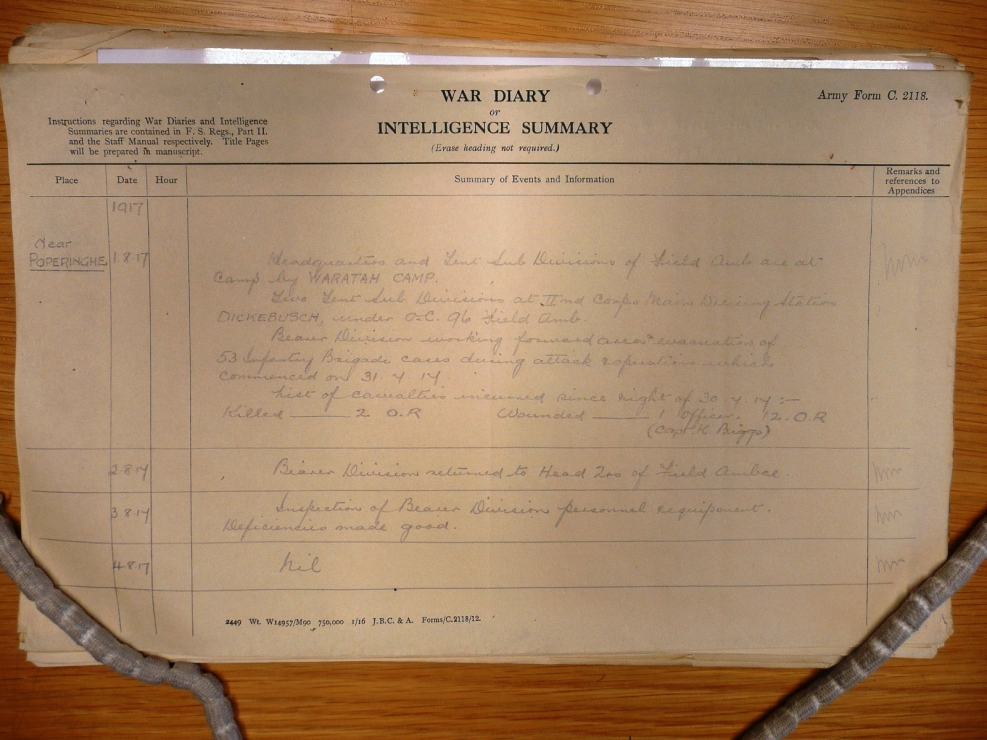 WAR DIARY
or
INTELLIGENCE SUMMARY
(Erase heading not required.)
Army Form C. 2118.
Instructions regarding War Diaries and Intelligence
Summaries are contained in F. S. Regs., Part II.
and the Staff Manual respectively. Title Pages
will be prepared in manuscript.
Place Date Hour Summary of Events and Information Remarks and references to Appendices
1917
Near
POPERINGHE 1.8.17 Headquarters and Tent Sub Divisions of Field Amb are at
Camp by WARATAH CAMP.
Two Tent Sub Divisions at IInd Corps Main Dressing Station
DICKEBUSCH, under O.C. 96 Field Amb.
Bearer Division working forward area evacuation of
53 Infantry Brigade cases during attack operations which
commenced on 31.7.17
List of casualties incurred since night of 30.7.17 :-
Killed — 2 O.R Wounded — 1 Officer. 12 O.R
(Capt K. Biggs)
2.8.17 Bearer Division returned to Head Qrs of Field Ambce.
3.8.17 Inspection of Bearer Division personnel & equipment.
Deficiencies made good.
4.8.17 Nil
2449 Wt. W14957/M90 750,000 1/16 J.B.C. & A. Forms/C.2118/12.